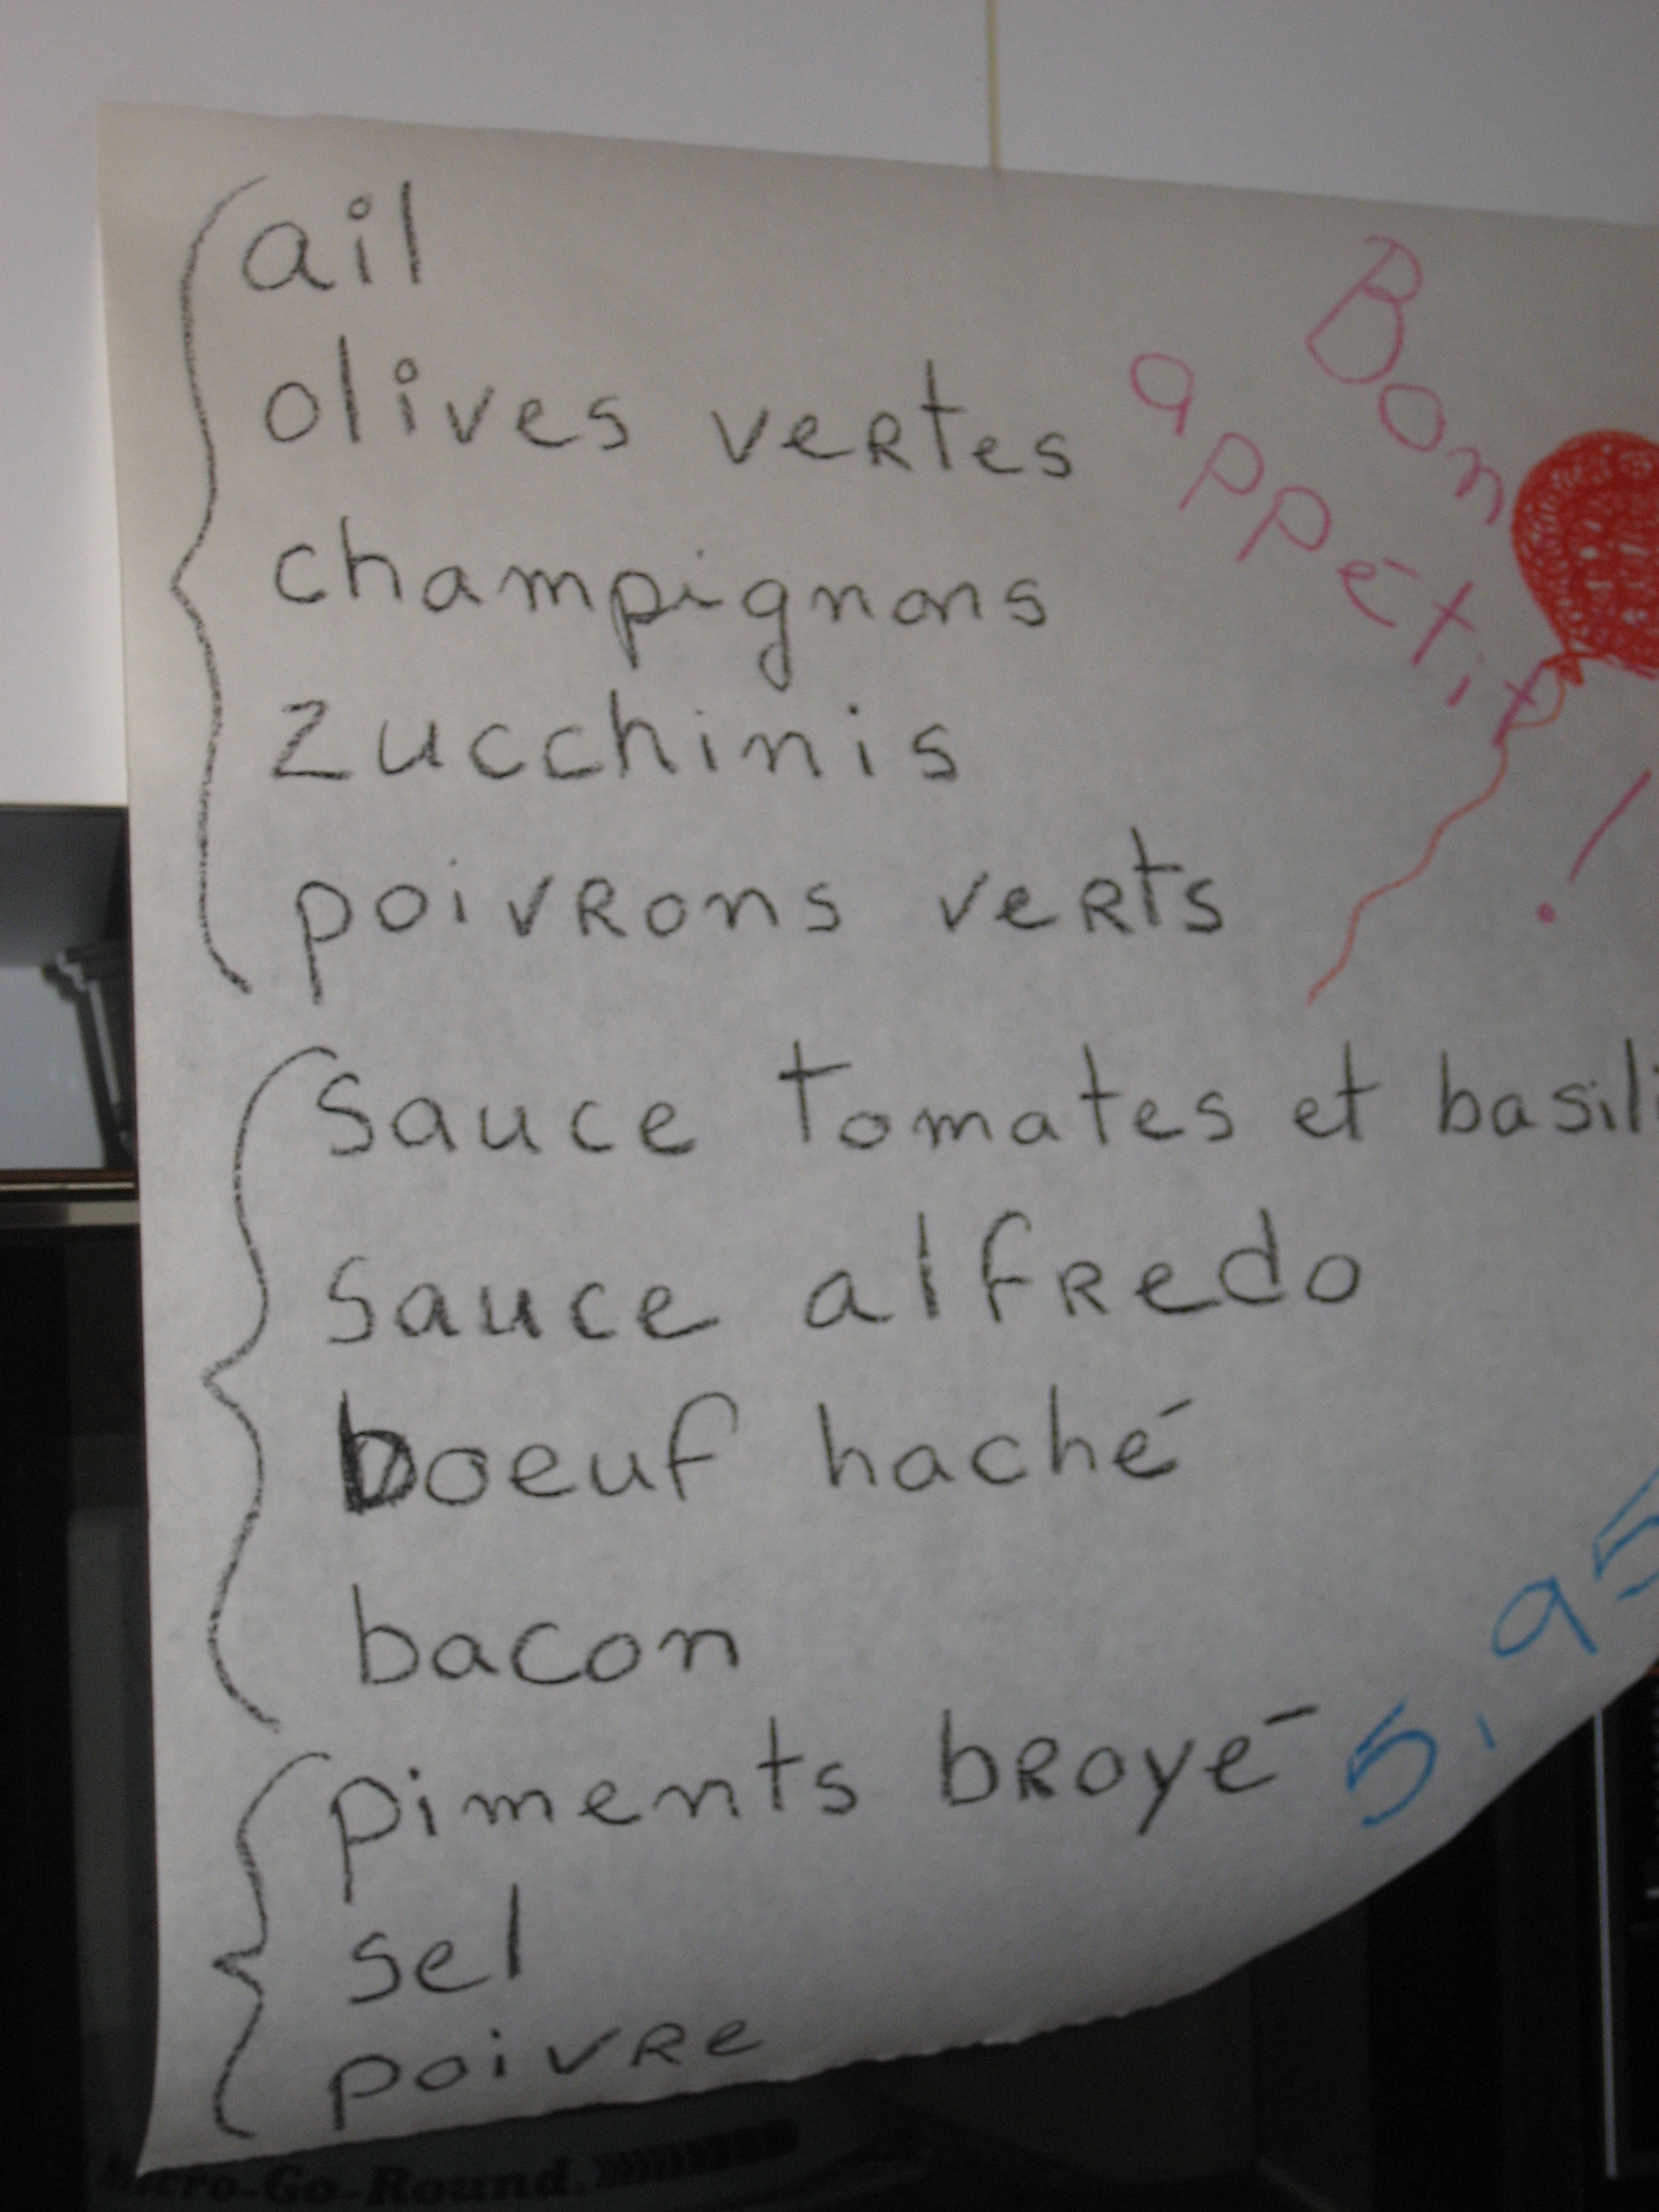 ail
olives vertes
champignons
zucchinis
poivrons verts
Bon
appétit
!
sauce tomates et basili
sauce alfredo
boeuf haché
bacon
piments broyé
5,95
sel
poivre
Micro-Go-Round